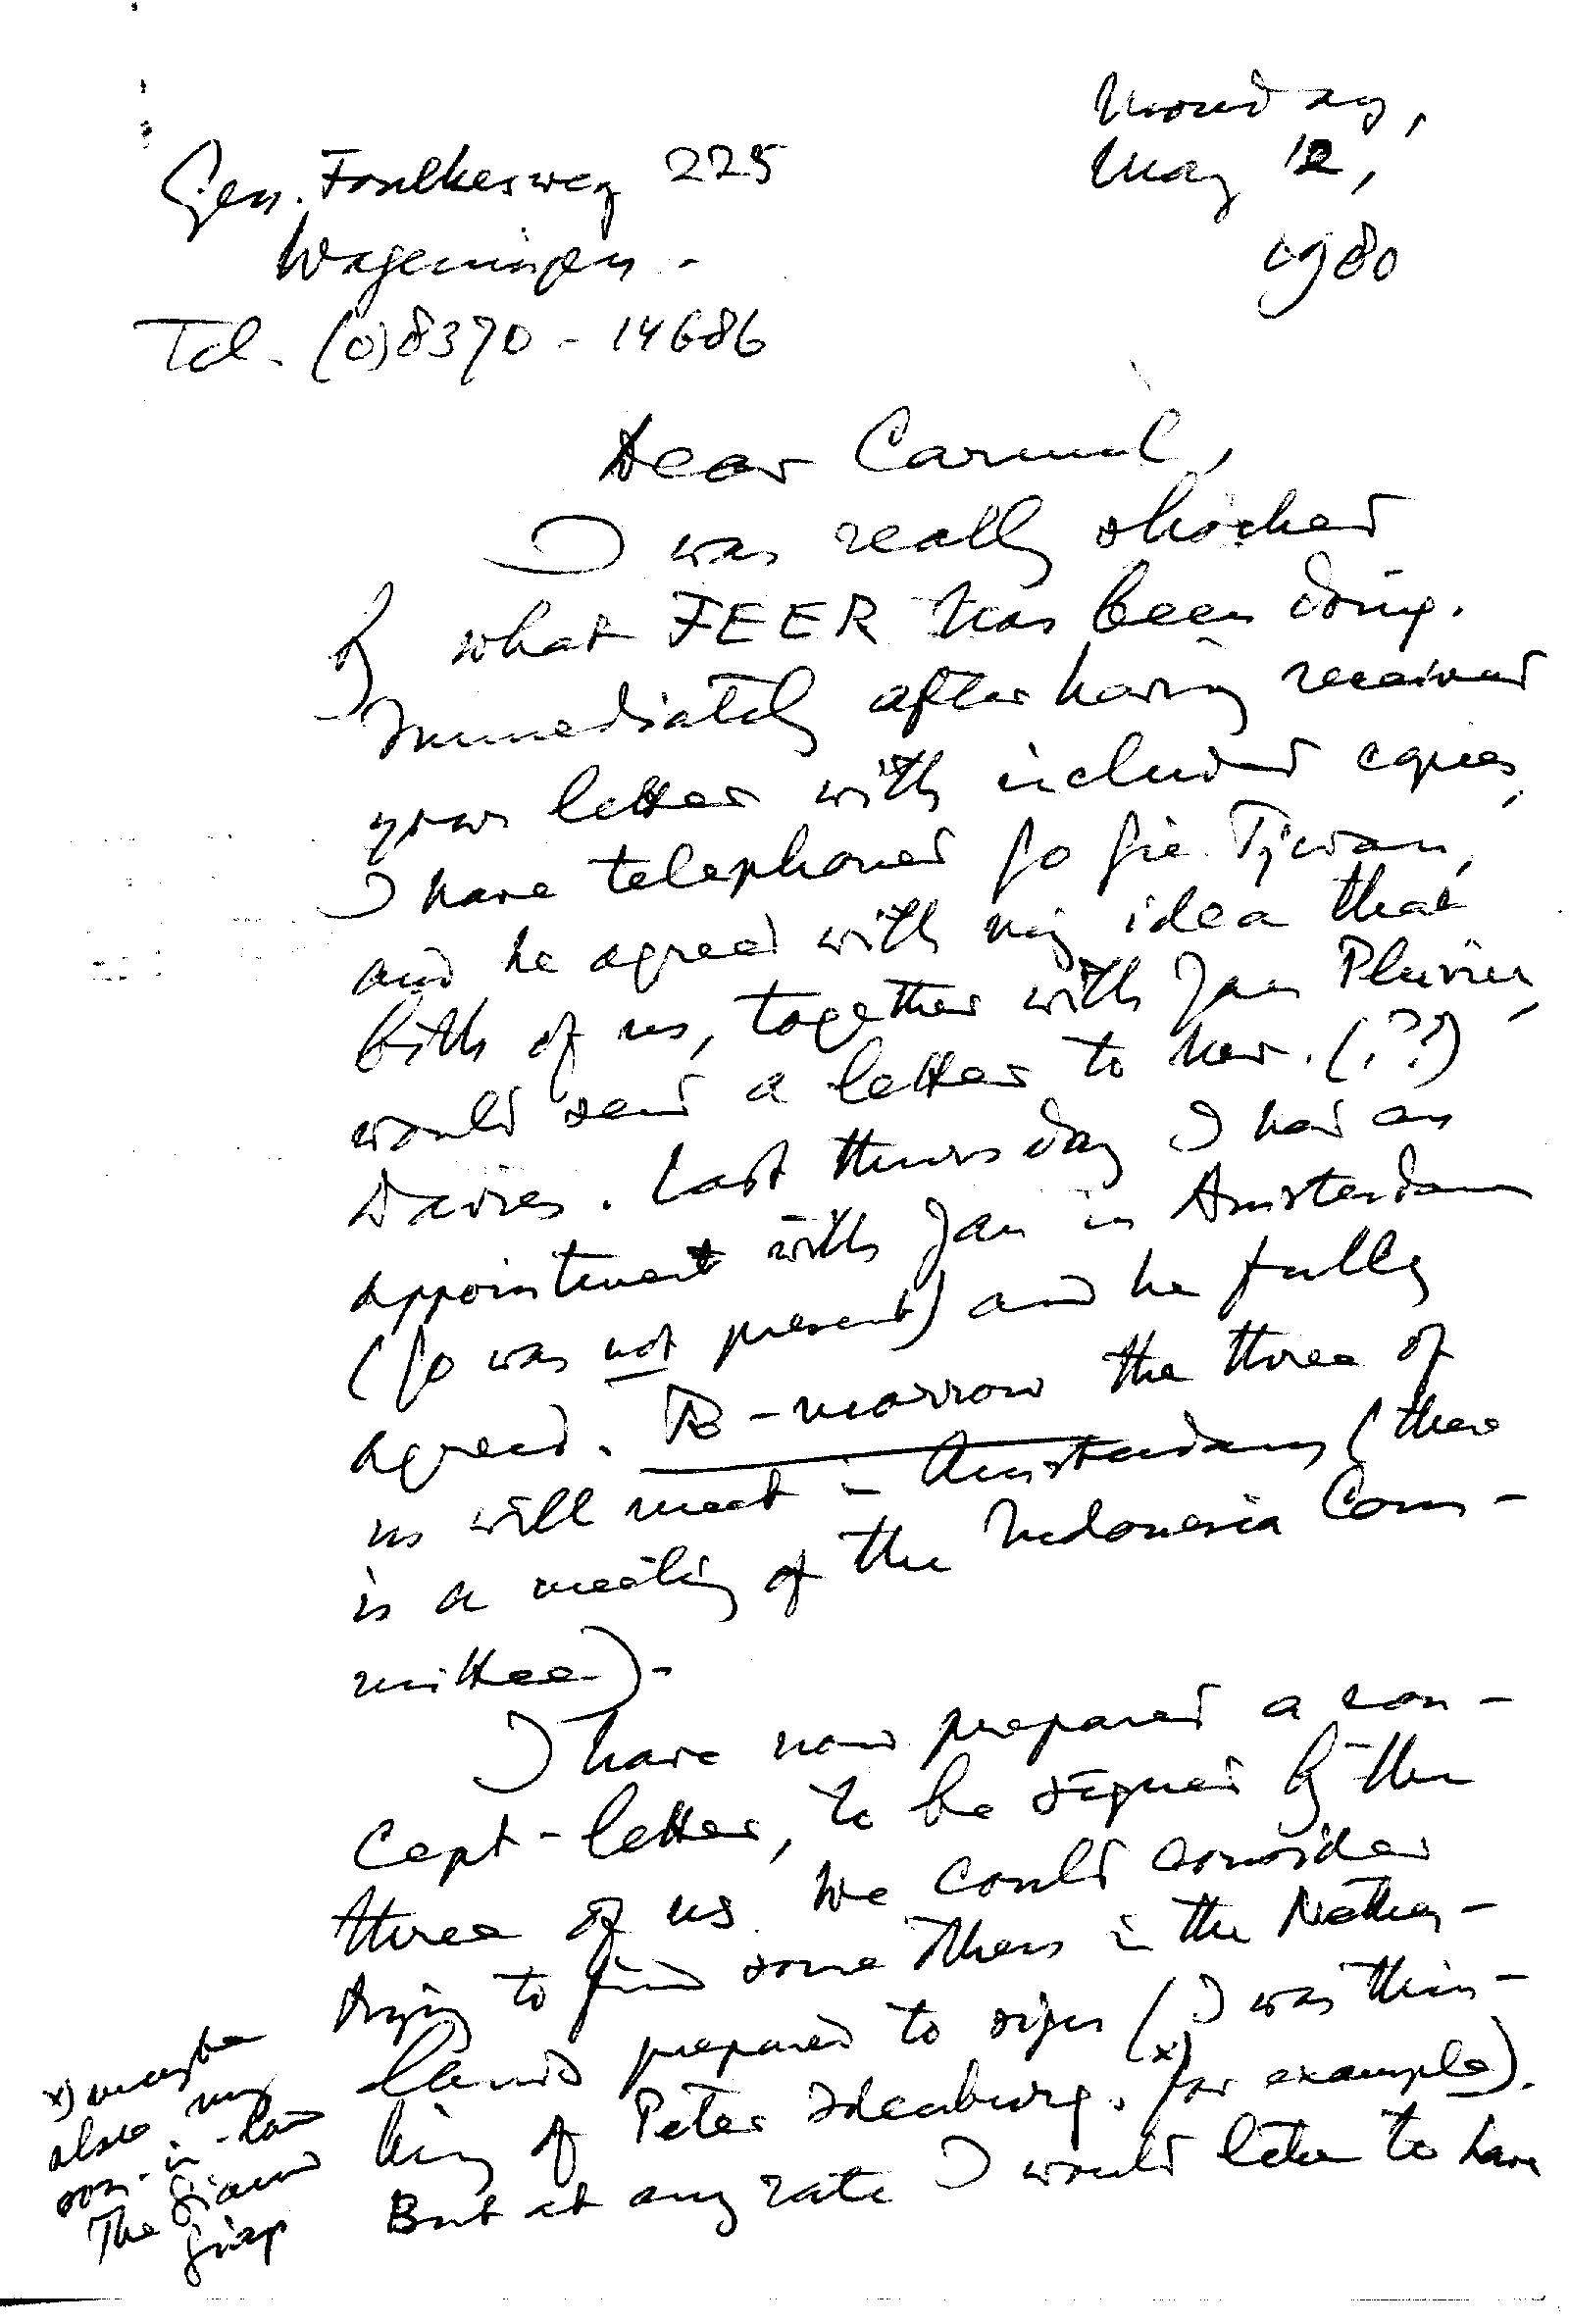 Monday,
May 12,
1980
Gen. Foulkesweg 225
Wageningen -
Tel. (0)8370 - 14686
Dear Carmel,
I was really shocked
by what FEER has been doing.
Immediately after having received
your letter with included copies,
I have telephoned Go Gie Tjwan,
and he agreed with my idea that
both of us, together with Jan Pluvier,
would send a letter to her. (??)
Davies. Last thursday I had an
appointment with Jan in Amsterdam
(Go was not present) and he fully
agreed. To-morrow the three of
us will meet in Amsterdam (there
is a meeting of the Indonesia Com-
mittee)-
I have now prepared a con-
cept-letter, to be signed by the
three of us. We could consider
trying to find some others in the Nether-
lands prepared to sign (I was thin-
king of Peter Idenburg x) for example).
But at any rate I would like to have
x) maybe
also my
son-in-law
The Siauw
Giap